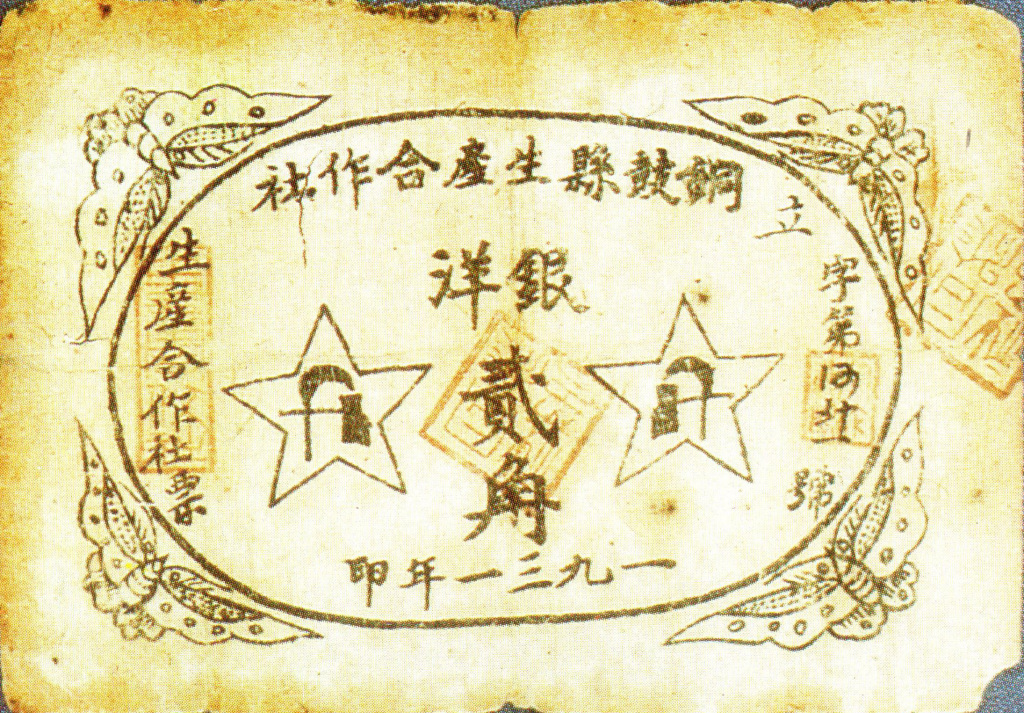 銅鼓縣生產合作社
立
字第
號
銀洋
貳角
一九三一年印
生產合作社票